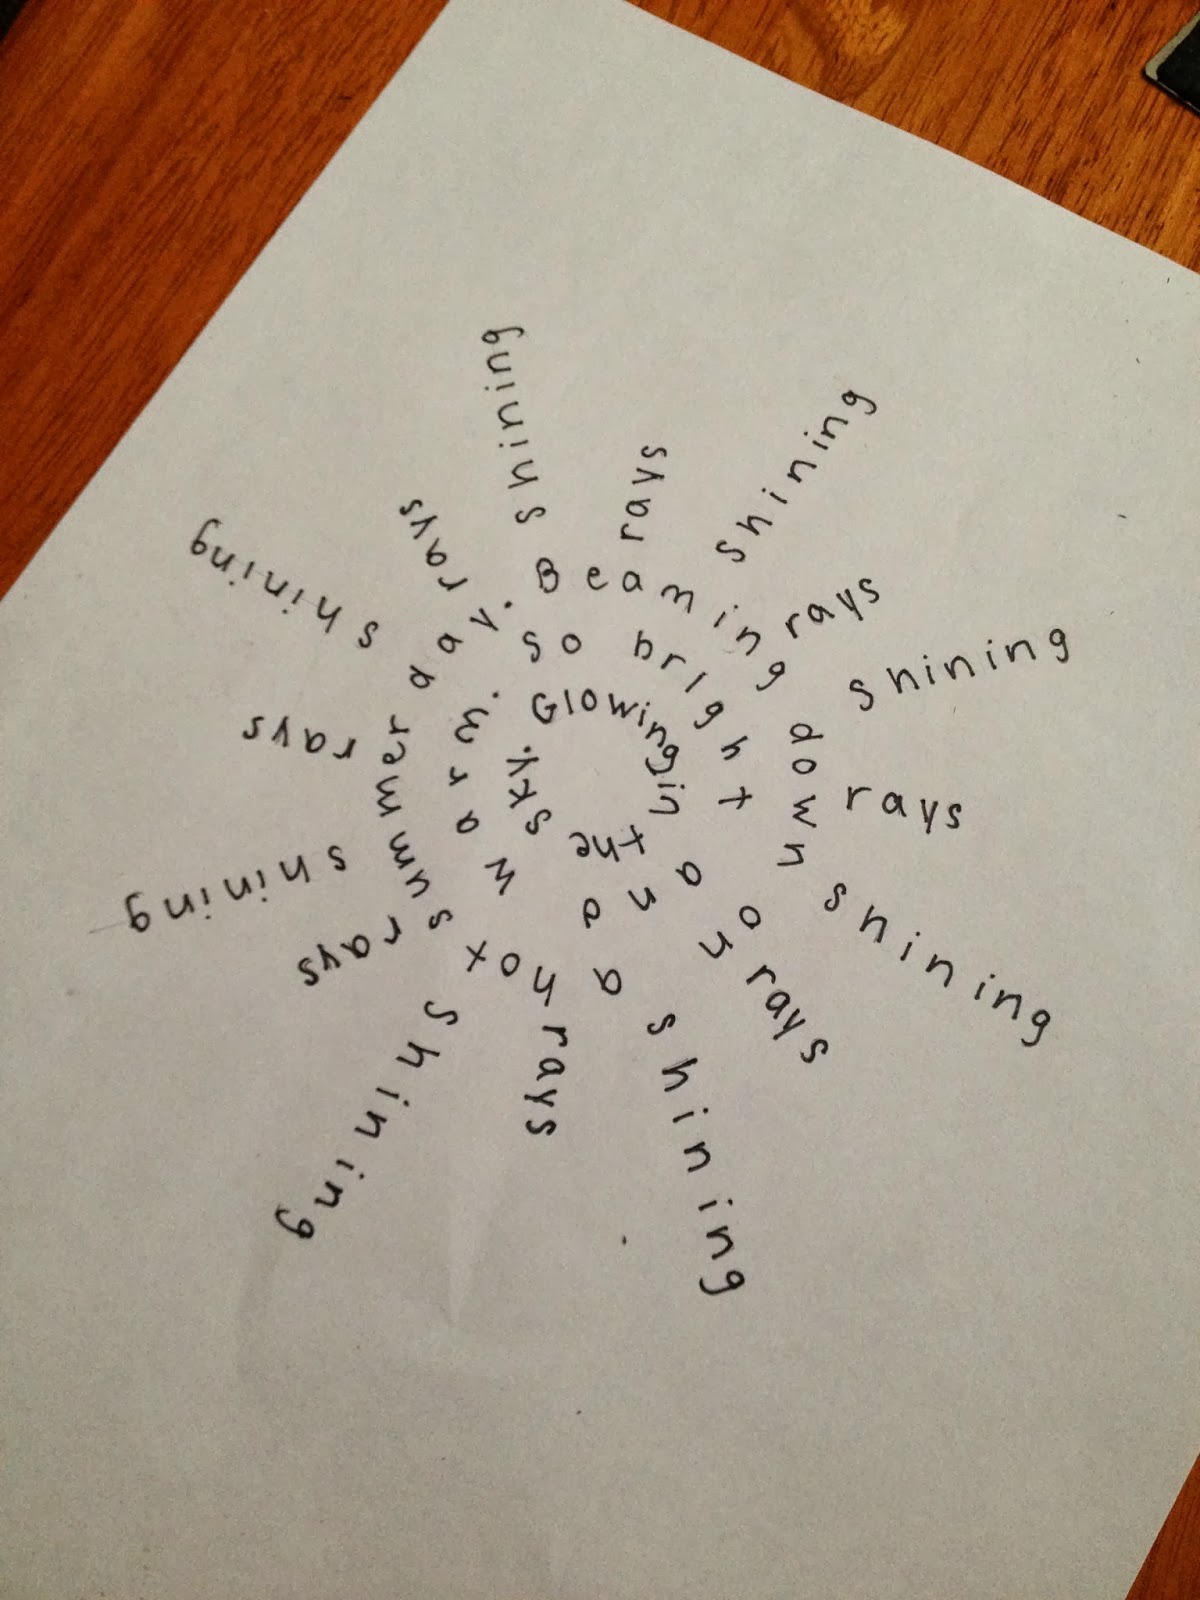 Glowing in the sky.
so bright and warm.
Beaming down on a hot summer day.
shining
rays
shining
rays
shining
rays
shining
rays
shining
rays
shining
rays
shining
rays
shining
rays